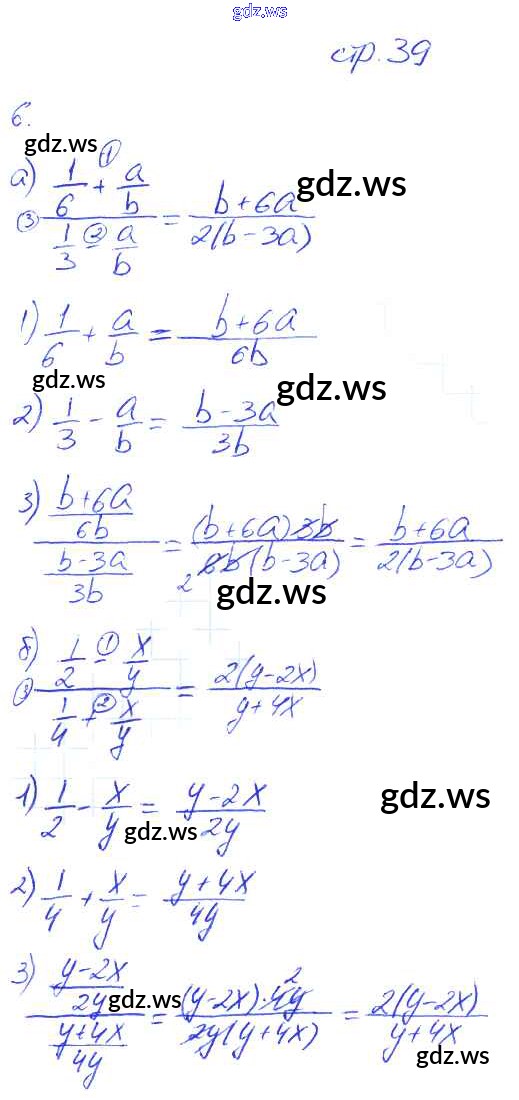 gdz.ws
стр. 39
6.
gdz.ws
а) (1/6 +① a/b) / (1/3 -② a/b) ③ = (b+6a) / (2(b-3a))
gdz.ws
1) 1/6 + a/b = (b+6a) / 6b
gdz.ws
gdz.ws
2) 1/3 - a/b = (b-3a) / 3b
3) ((b+6a)/6b) / ((b-3a)/3b) = ((b+6a)3b) / (6b(b-3a)) 2 = (b+6a) / (2(b-3a))
gdz.ws
б) (1/2 -① x/y) / (1/4 +② x/y) ③ = 2(y-2x) / (y+4x)
1) 1/2 - x/y = (y-2x) / 2y
gdz.ws
gdz.ws
2) 1/4 + x/y = (y+4x) / 4y
3) ((y-2x)/2y) / ((y+4x)/4y) = ((y-2x)·4y) 2 / (2y(y+4x)) = 2(y-2x) / (y+4x)
gdz.ws
gdz.ws
gdz.ws